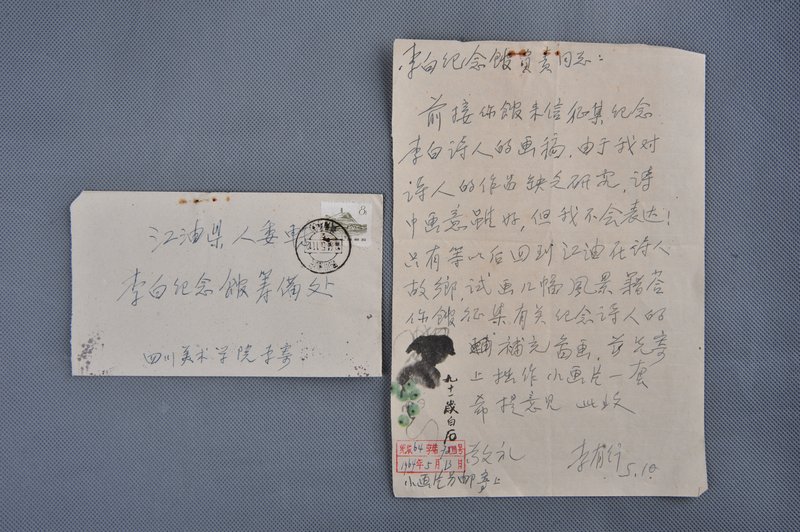 江油県人委転
李白纪念馆筹備处
四川美术学院李寄
8分
李白纪念馆負责同志：
前接你馆来信征集纪念
李白诗人的画稿，由于我对
诗人的作品缺乏研究，诗
中画意虽好，但我不会表达！
只有等以后回到江油在诗人
故鄉，试画几幅風景籍答
你馆征集有关纪念诗人的
補充畜画，兹先寄
上拙作小画片一套
希提意见 此致
敬礼
李有行 5.10
九十一歲白石
64
1964年5月13日
小画片另邮寄上